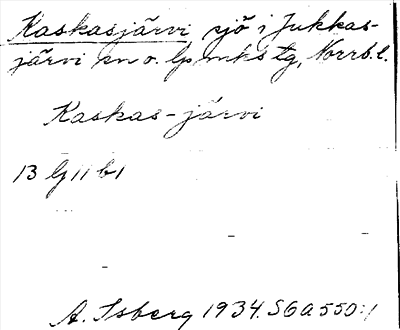 Kaskasjärvi sjö i Jukkas-
järvi sn o. lpmks tg, Norrb. l.
Kaskas-järvi
13 lj 11 b1
A. Isberg 1934. SOA 550:1